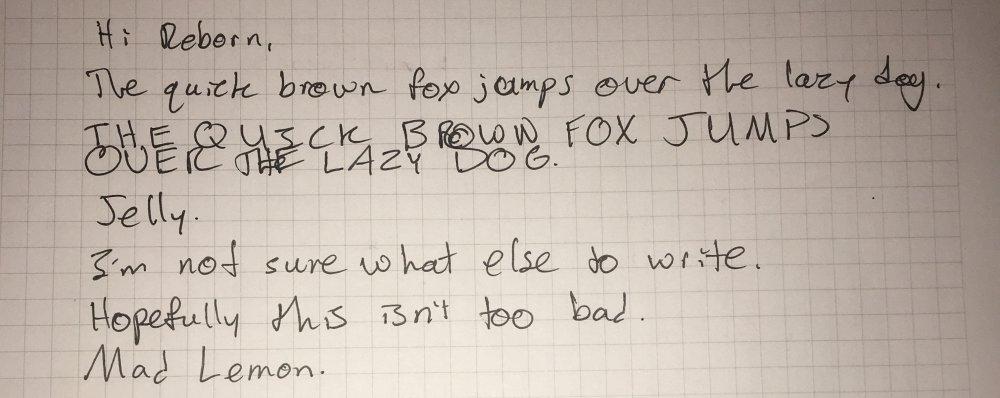 Hi Reborn,
The quick brown fox jumps over the lazy dog.
THE QUICK BROWN FOX JUMPS
OVER THE LAZY DOG.
Jelly.
I'm not sure what else to write.
Hopefully this isn't too bad.
Mad Lemon.